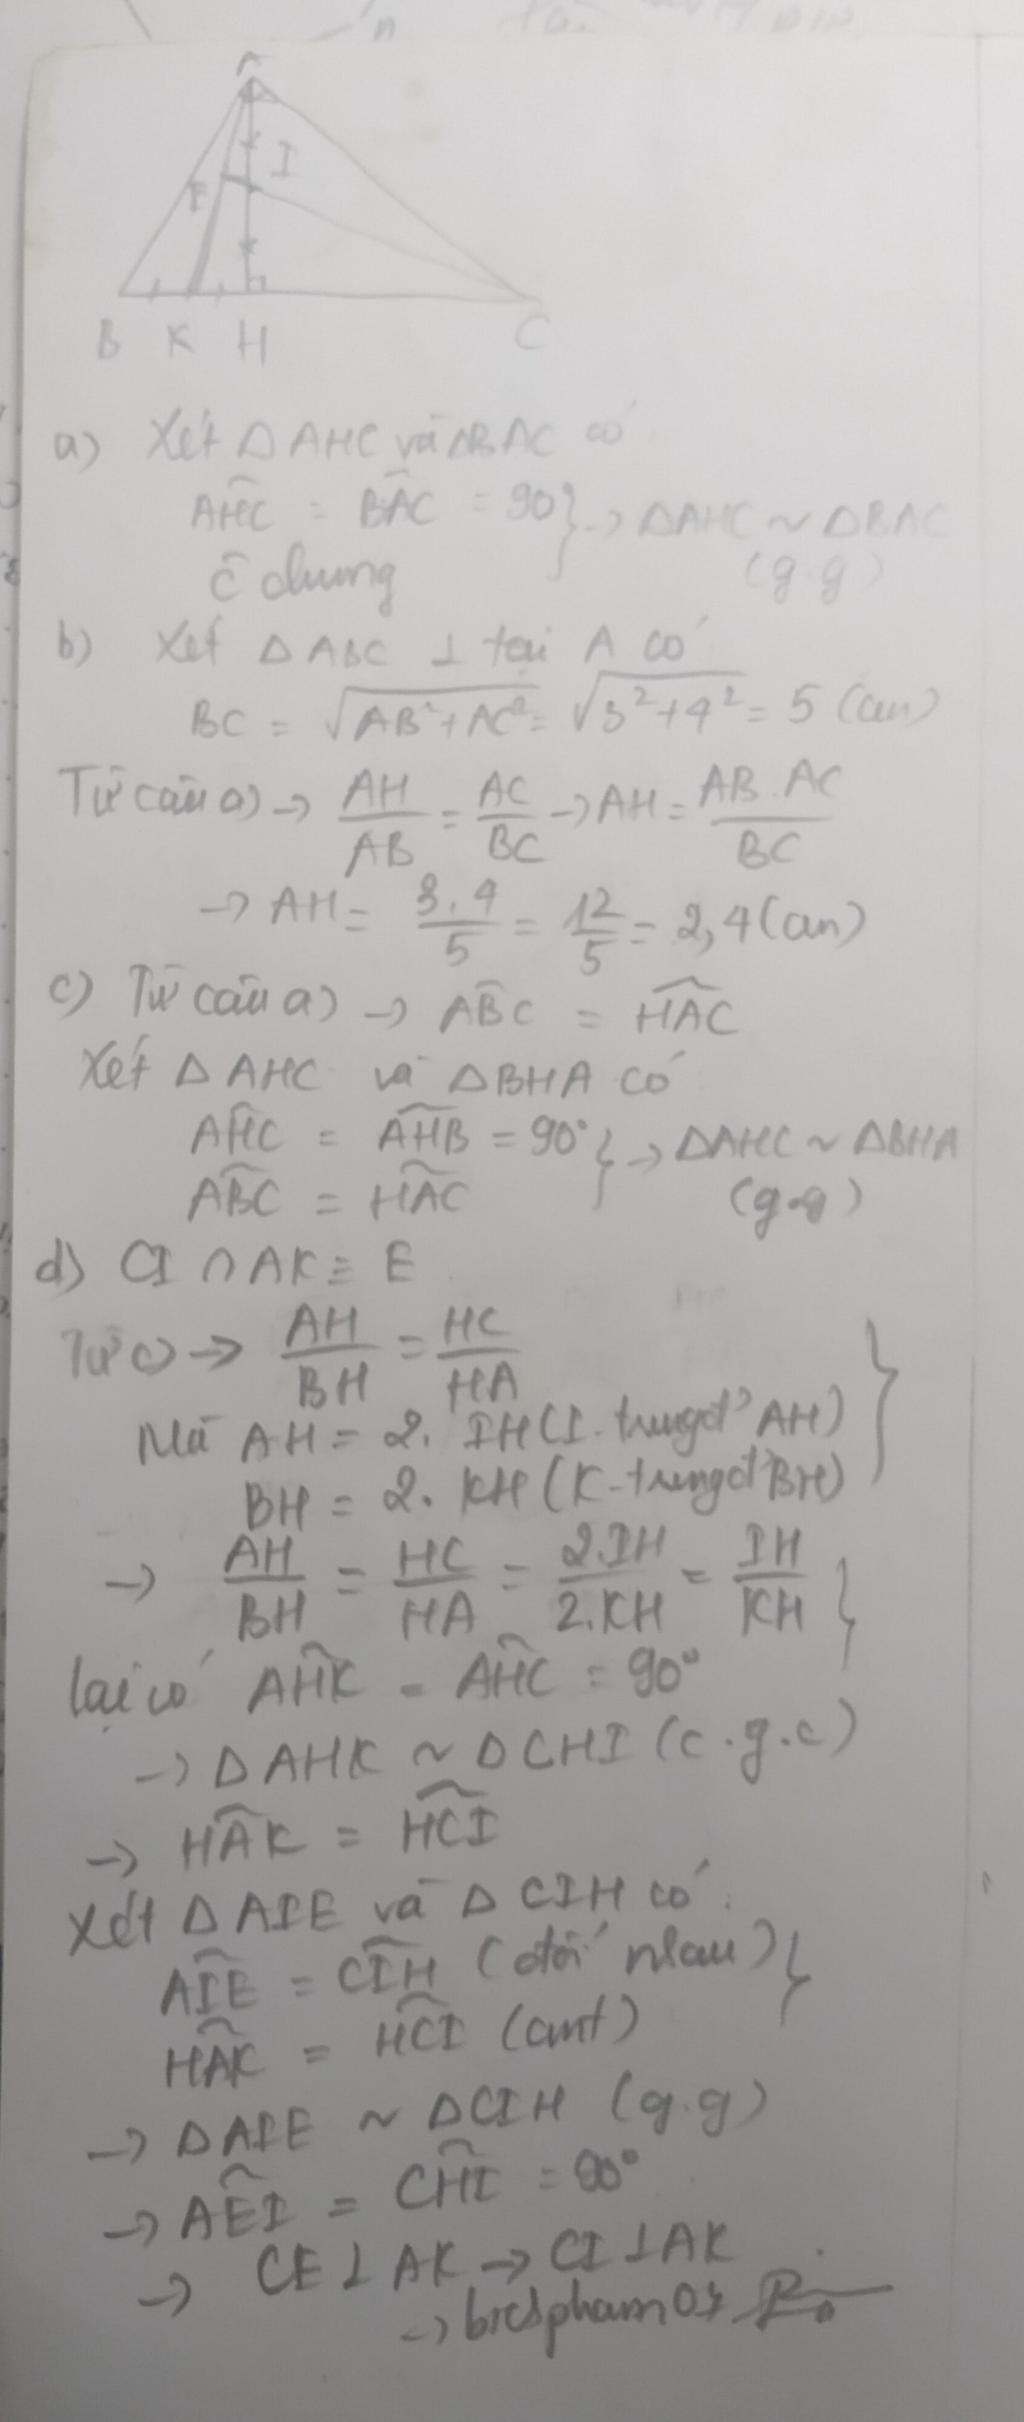 A
I
E
B K H C
a) Xét Δ AHC và ΔBAC có
AHC = BAC = 90 } → ΔAHC ~ ΔBAC
C chung (g.g)
b) Xét Δ ABC ⊥ tại A có
BC = √AB²+AC² = √3²+4² = 5 (cm)
Từ câu a) → AH/AB = AC/BC → AH = AB.AC/BC
→ AH = 3.4/5 = 12/5 = 2,4 (cm)
c) Từ câu a) → ABC = HAC
Xét Δ AHC và ΔBHA có
AHC = AHB = 90° } → ΔAHC ~ ΔBHA
ABC = HAC (g.g)
d) CI ∩ AK ≡ E
Từ c) → AH/BH = HC/HA
Mà AH = 2. IH (I-trungđ' AH) }
BH = 2. KH (K-trungđ' BH)
→ AH/BH = HC/HA = 2.IH/2.KH = IH/KH }
lại có AHK = AHC = 90°
→ Δ AHK ~ Δ CHI (c.g.c)
→ HAK = HCI
Xét Δ AIE và Δ CIH có:
AIE = CIH (đối nhau) }
HAK = HCI (cmt)
→ ΔAIE ~ ΔCIH (g.g)
→ AEI = CHI = 90°
→ CE ⊥ AK → CI ⊥ AK